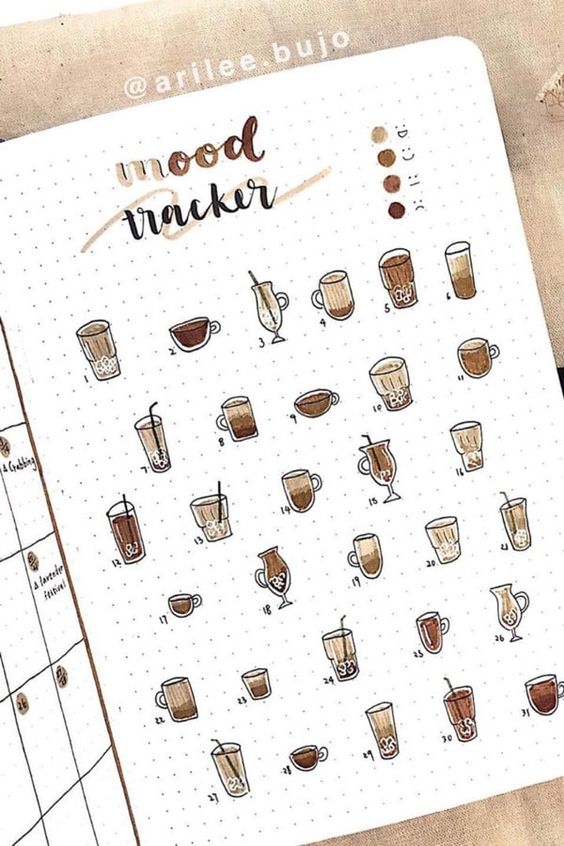 @arilee.bujo
mood
tracker
:D
C:
I:
):
1 2 3 4 5 6
7 8 9 10 11
12 13 14 15 16
17 18 19 20 21
22 23 24 25 26
27 28 29 30 31
lavender
festival